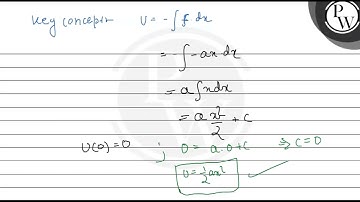 Key concept U = -∫f dx
= -∫-ax dx
= a∫xdx
= a x²/2 + c
U(0)=0 ; 0 = a.0+c ⇒ c=0
U = ½ax²
PW